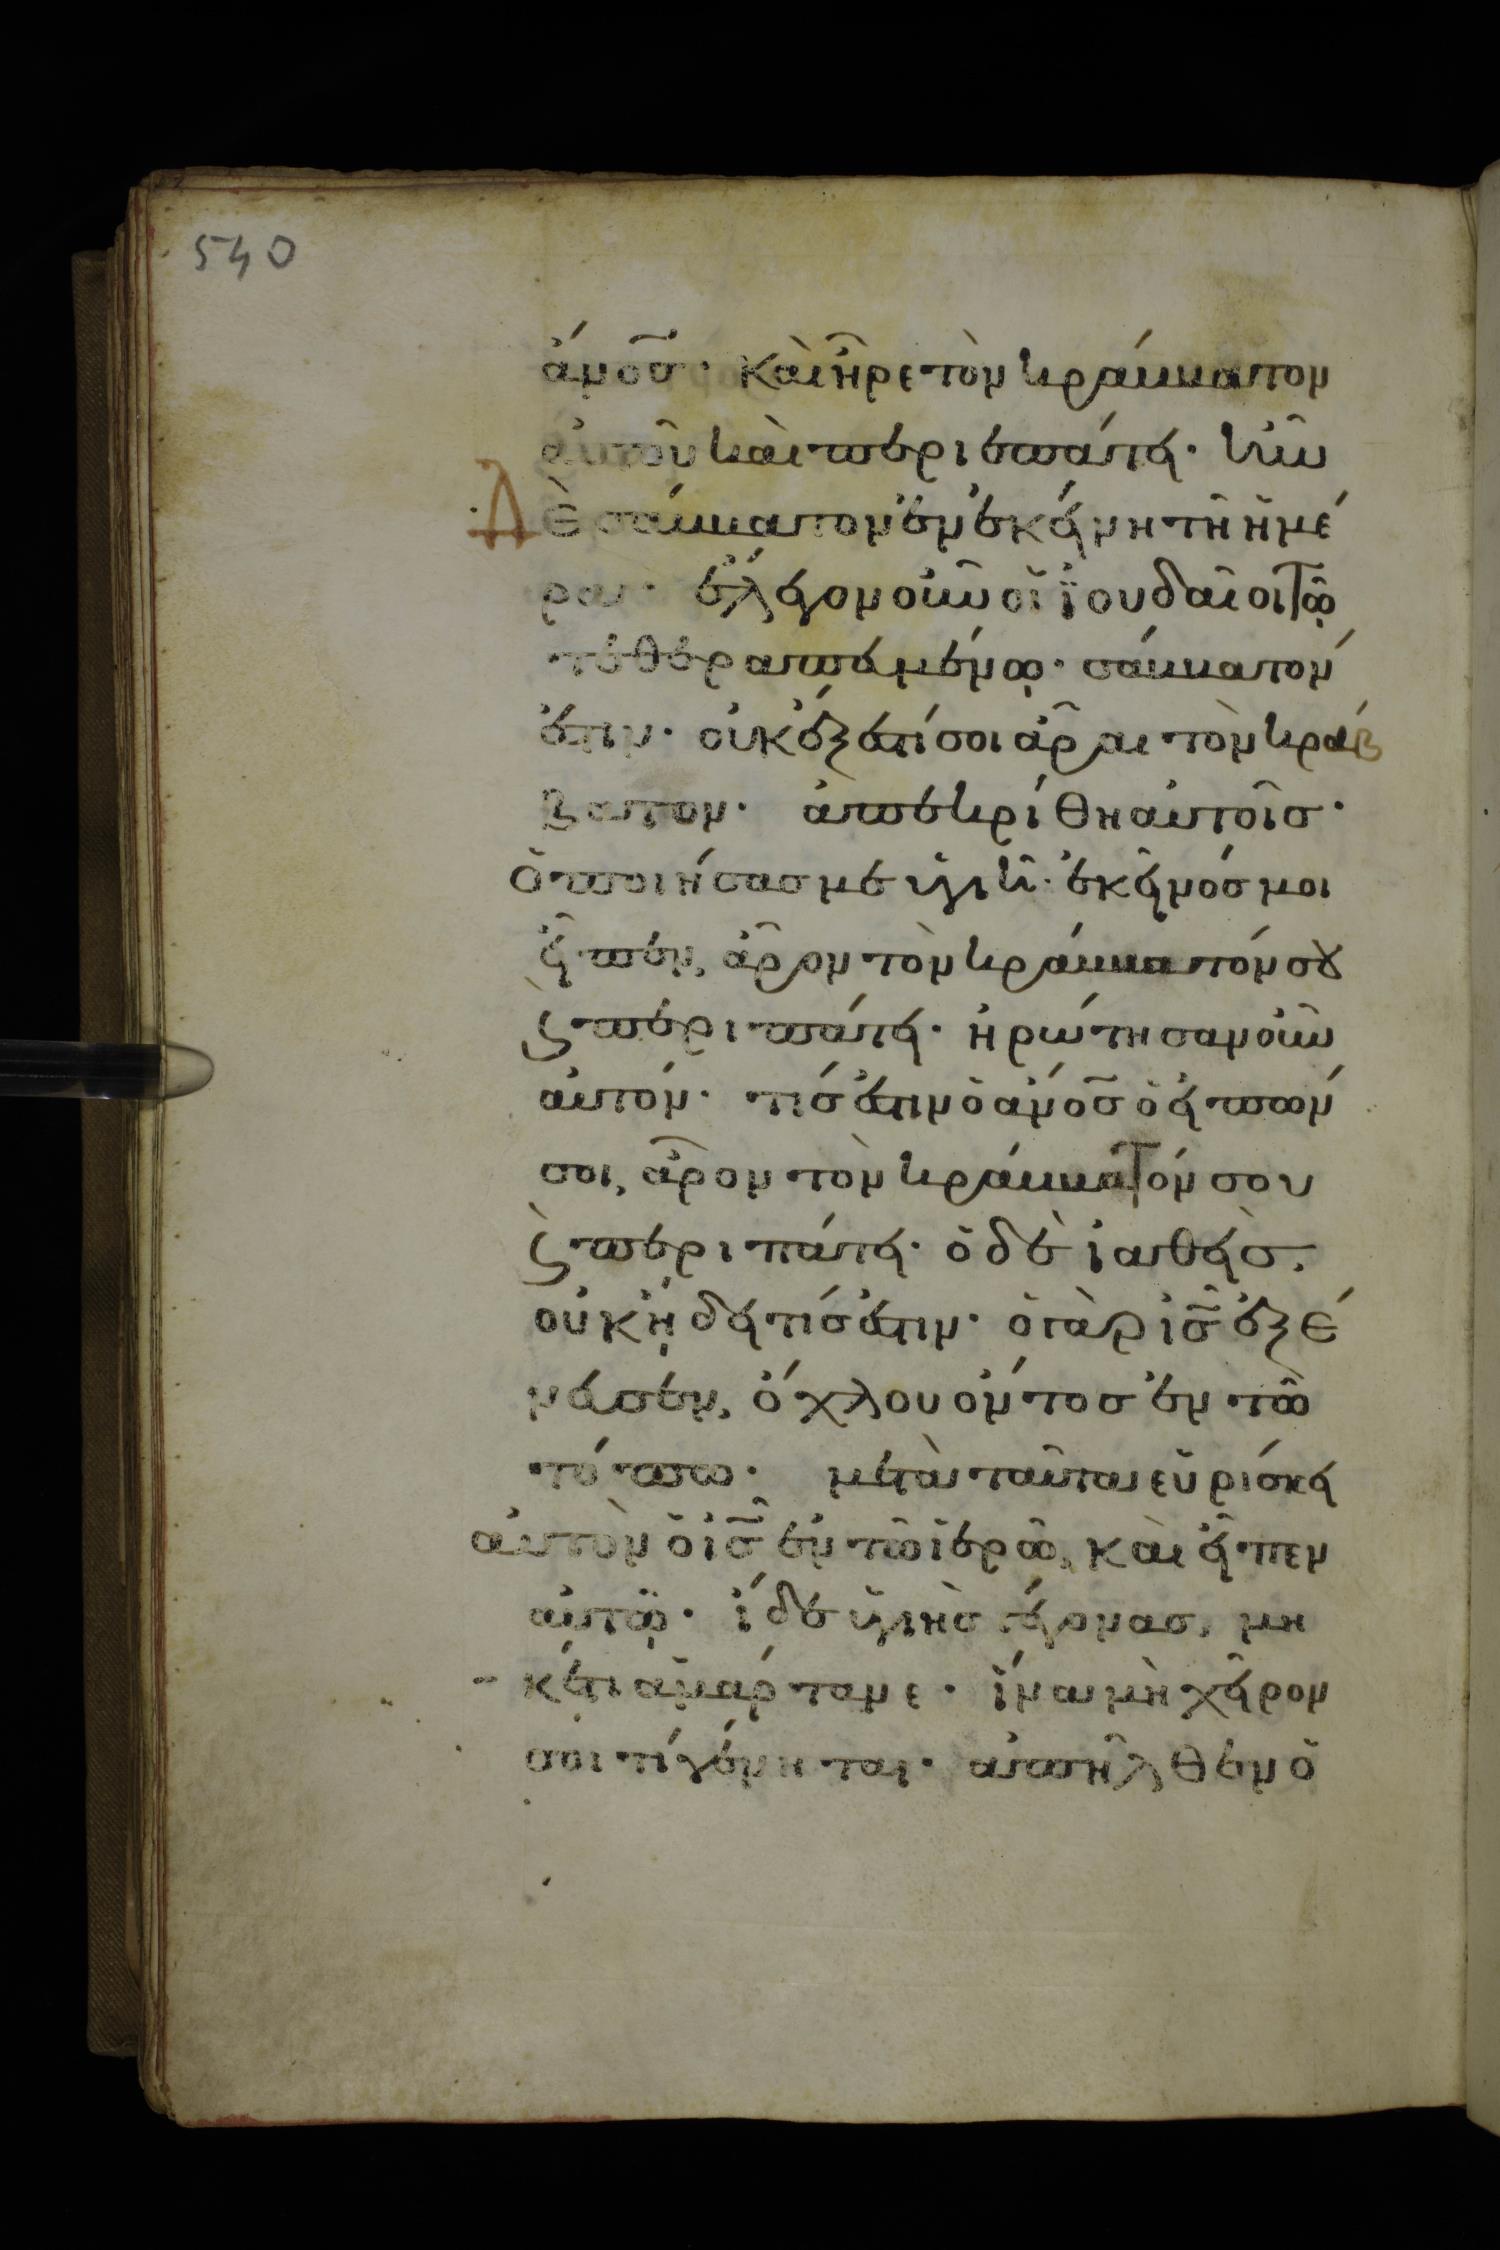 540
ἄνο̅σ· καὶ ἦρε τὸν κράββατον
αὐτοῦ καὶ περιεπάτει· ἦν
Δὲ σάββατον ἐν ἐκείνη τῆ ἡμέ
ρα· ἔλεγον οὖν οἱ ϊουδαῖοι τῶ
τεθεραπευμένω· σάββατόν
ἐστιν· οὐκ ἔξεστί σοι ἆραι τὸν κράβ
βατον· ἀπεκρίθη αὐτοῖσ·
ὁ ποιήσασ με ὑγιῆ· ἐκεῖνόσ μοι
εἶπεν, ἆρον τὸν κράββατόν σου
ϗ περιπάτει· ἠρώτησαν οὖν
αὐτόν· τίσ ἐστιν ὁ ἄνο̅σ ὁ εἰπών
σοι, ἆρον τὸν κράββατόν σου
ϗ περιπάτει· ὁ δὲ ἰαθεὶσ,
οὐκ ἤδει τίσ ἐστιν· ὁ γὰρ ι̅σ̅ ἐξέ
νευσεν, ὄχλου ὄντοσ ἐν τῶ
τόπω· μετὰ ταῦτα εὑρίσκει
αὐτὸν ὁ ι̅σ̅ ἐν τῶ ἱερῶ, καὶ εἶπεν
αὐτῶ· ἴδε ὑγιὴσ γέγονασ, μη
κέτι ἁμάρτανε· ἵνα μὴ χεῖρον
σοι τί γένηται· ἀπῆλθεν ὁ